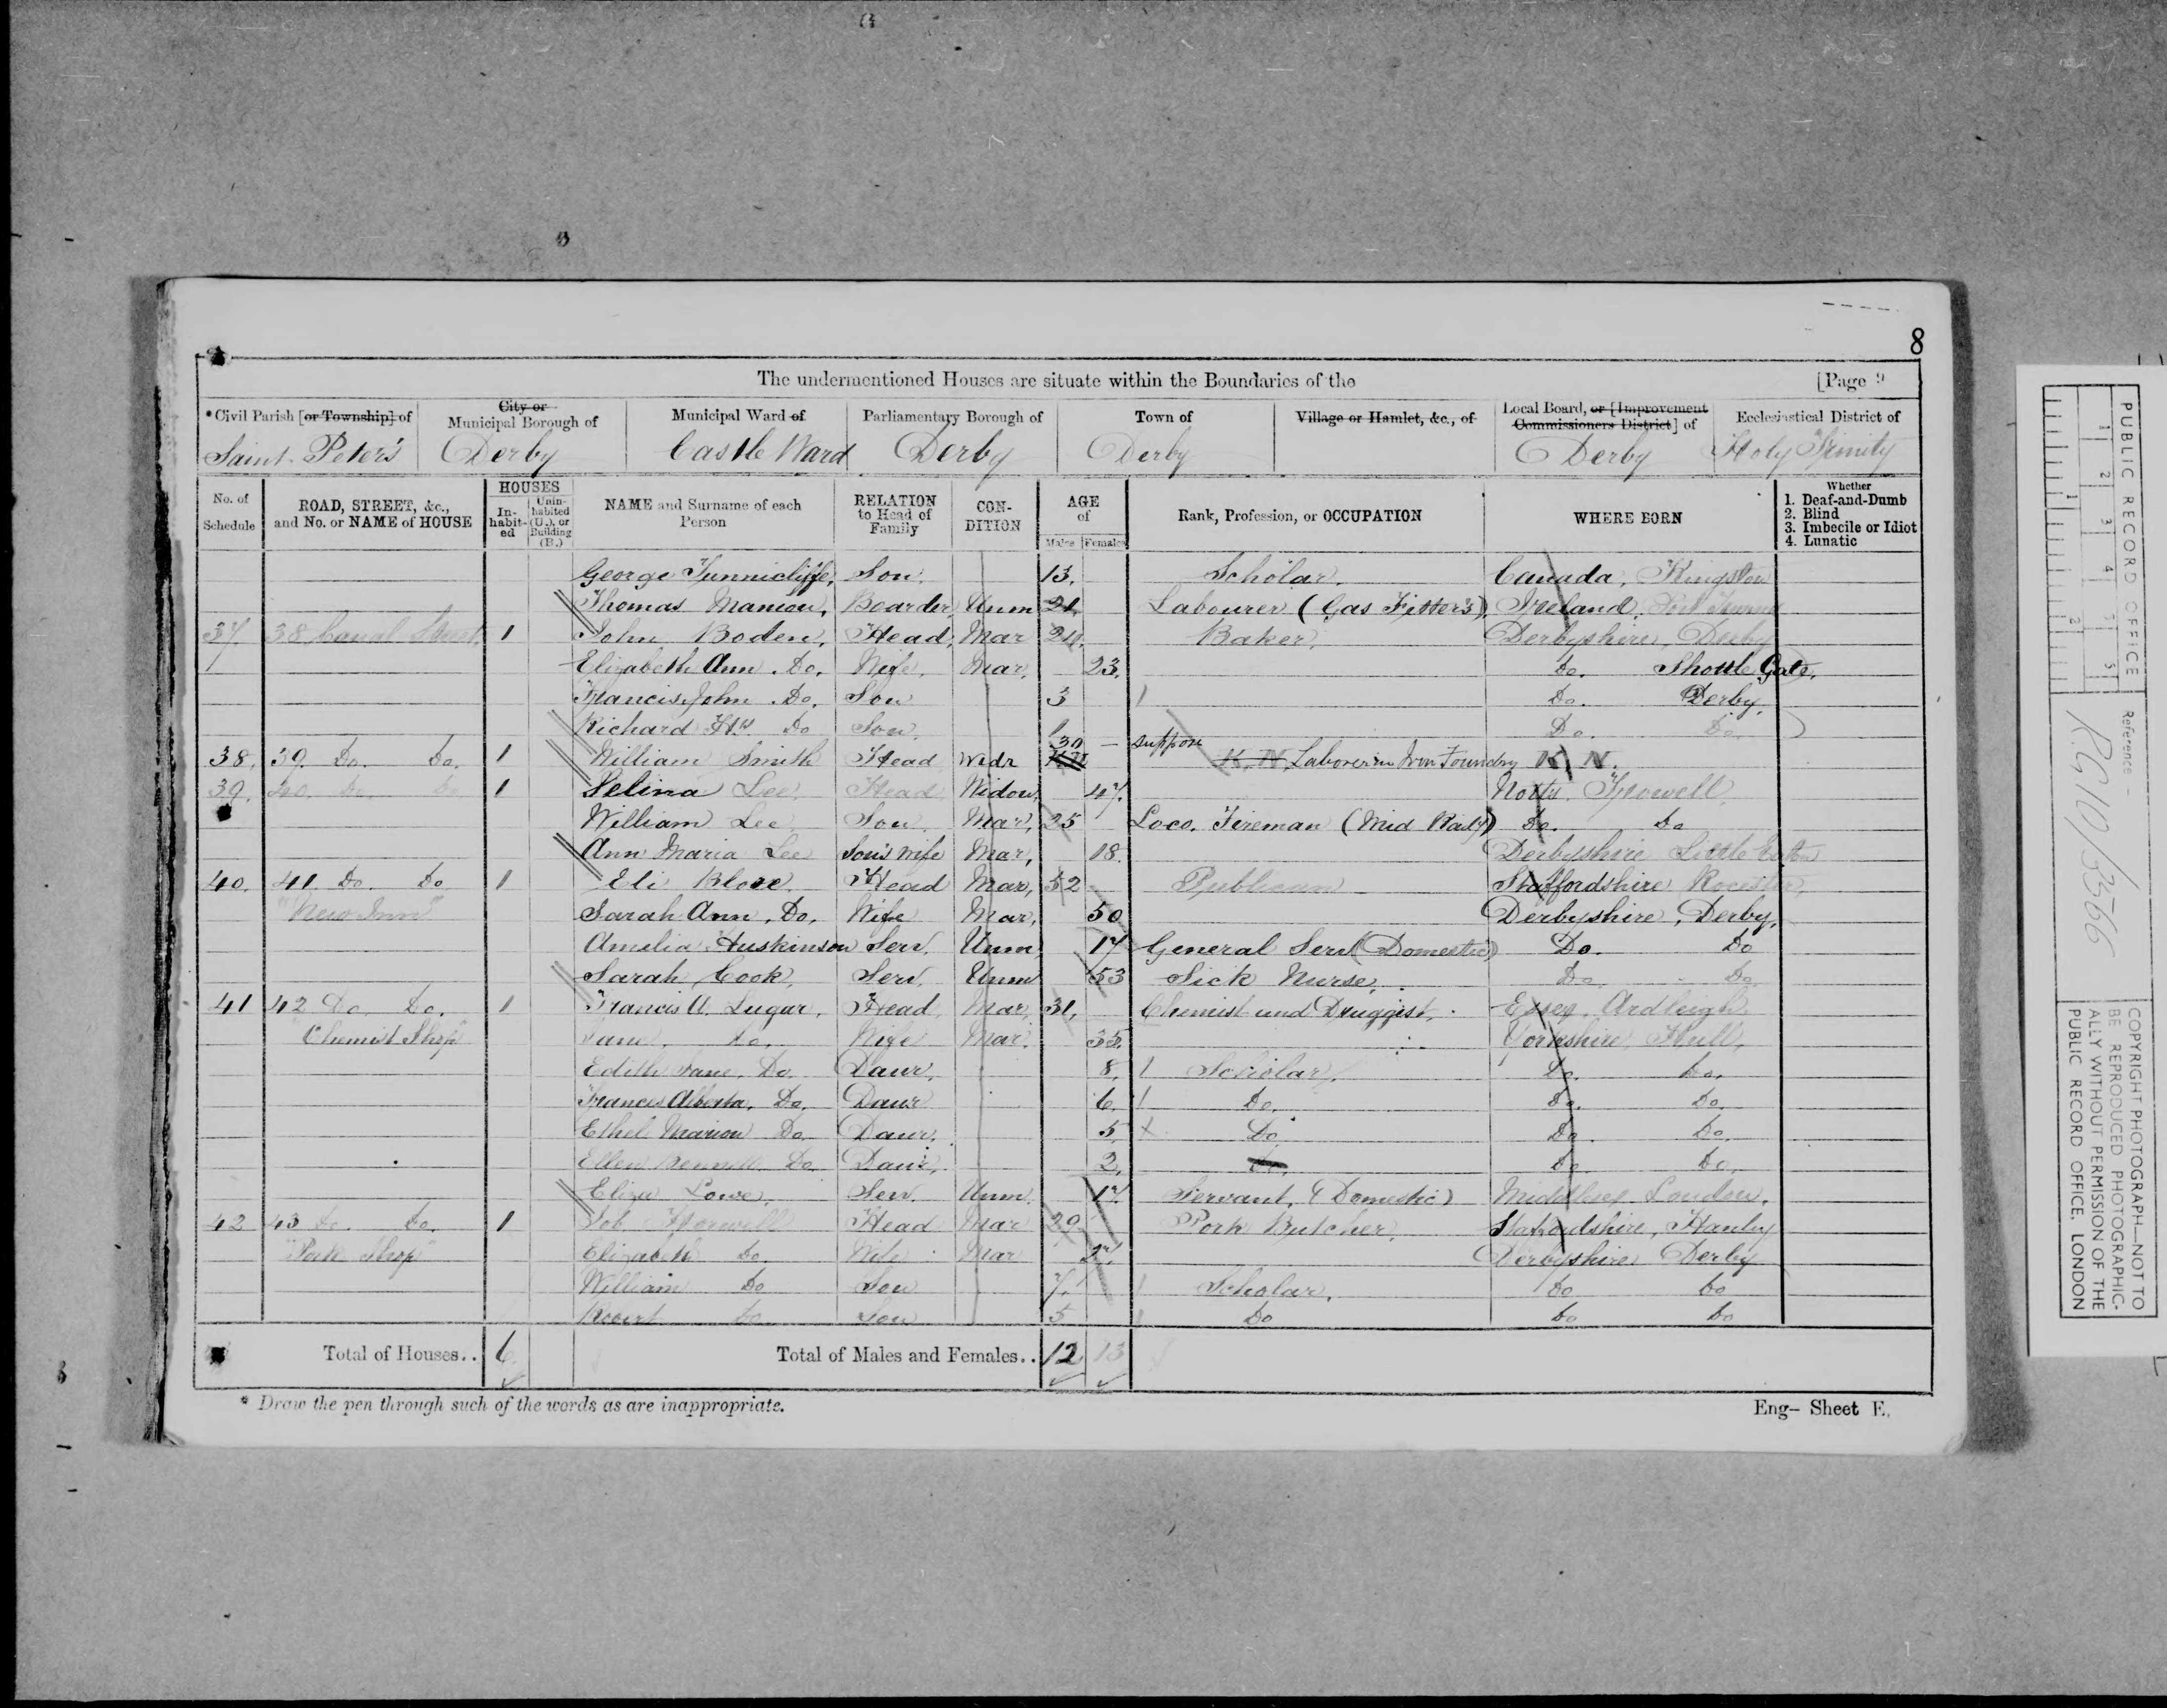 8
The undermentioned Houses are situate within the Boundaries of the [Page 9
*Civil Parish [or Township] of City or Municipal Borough of Municipal Ward of Parliamentary Borough of Town of Village or Hamlet, &c., of Local Board, or [Improvement Commissioners District] of Ecclesiastical District of
Saint Peter's Derby Castle Ward Derby Derby Derby Holy Trinity
No. of Schedule ROAD, STREET, &c., and No. or NAME of HOUSE HOUSES Inhabited Uninhabited (U.), or Building (B.) NAME and Surname of each Person RELATION to Head of Family CONDITION AGE of Males Females Rank, Profession, or OCCUPATION WHERE BORN Whether 1. Deaf-and-Dumb 2. Blind 3. Imbecile or Idiot 4. Lunatic
George Tunnicliffe, Son. 13. Scholar. Canada, Kingston
Thomas Manion, Boarder Unm 21 Labourer (Gas Fitter's) Ireland,
37 38 Canal Street, 1 John Boden, Head, Mar 24. Baker, Derbyshire, Derby
Elizabeth Ann. Do. Wife. Mar. 23. Do. Shottle Gate.
Francis John. Do. Son 3 Do. Derby.
Richard Hy. Do Son. 1 Do. Do.
38. 39. Do. Do. 1 William Smith Head Widr 30 suppose K. N. Laborer in Iron Foundry N. K.
39. 40. Do. Do. 1 Selina Lee Head Widow, 47. Notts. Trowell
William Lee Son. Mar, 25 Loco. Fireman (Mid Raily) Do. Do
Ann Maria Lee Son's Wife Mar, 18. Derbyshire Little Eaton
40. 41. Do. Do. 1 Eli Blore. Head Mar, 52 Publican Staffordshire Rocester,
"New Inn" Sarah Ann, Do. Wife Mar, 50 Derbyshire, Derby.
Amelia Huskinson Serv. Unm 17 General Serv (Domestic) Do. Do
Sarah Cook, Serv. Unm 53 Sick Nurse. Do. Do.
41 42 Do. Do. 1 Francis A. Lugar, Head, Mar, 31. Chemist and Druggist. Essex. Ardleigh
Chemist Shop Jane. Do. Wife Mar. 35. Yorkshire Hull,
Edith Jane. Do. Daur. 8. Scholar. Do. Do.
Frances Alberta. Do. Daur 6. Do. Do. Do.
Ethel Marion Do. Daur. 5. Do Do. Do.
Ellen Do. Daur. 2. Do. Do. Do.
Eliza Lowe, Serv. Unm. 17. Servant, (Domestic) Middlesex London.
42. 43 Do. Do. 1 Job Head Mar 29 Pork Butcher. Staffordshire, Hanley
"Pork Shop" Elizabeth Do. Wife Mar 27. Derbyshire Derby
William Do Son 7. Scholar. Do Do
Robert Do. Son 5 Do Do Do
Total of Houses.. 6 Total of Males and Females.. 12 13
* Draw the pen through such of the words as are inappropriate. Eng- Sheet E.
PUBLIC RECORD OFFICE
1 2 3 4 5
1 2
Reference -
R.G 10/3566
COPYRIGHT PHOTOGRAPH—NOT TO
BE REPRODUCED PHOTOGRAPHIC-
ALLY WITHOUT PERMISSION OF THE
PUBLIC RECORD OFFICE, LONDON